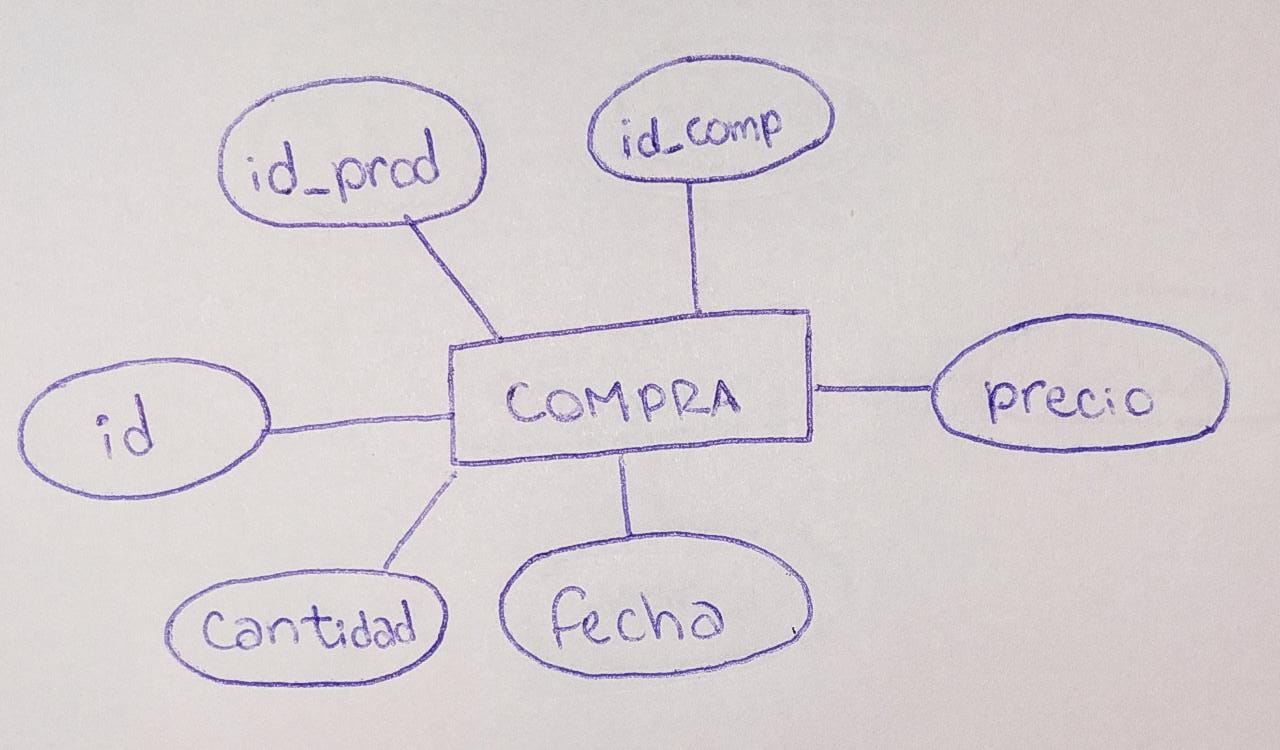 id_prod
id_comp
id
COMPRA
precio
Cantidad
fecha